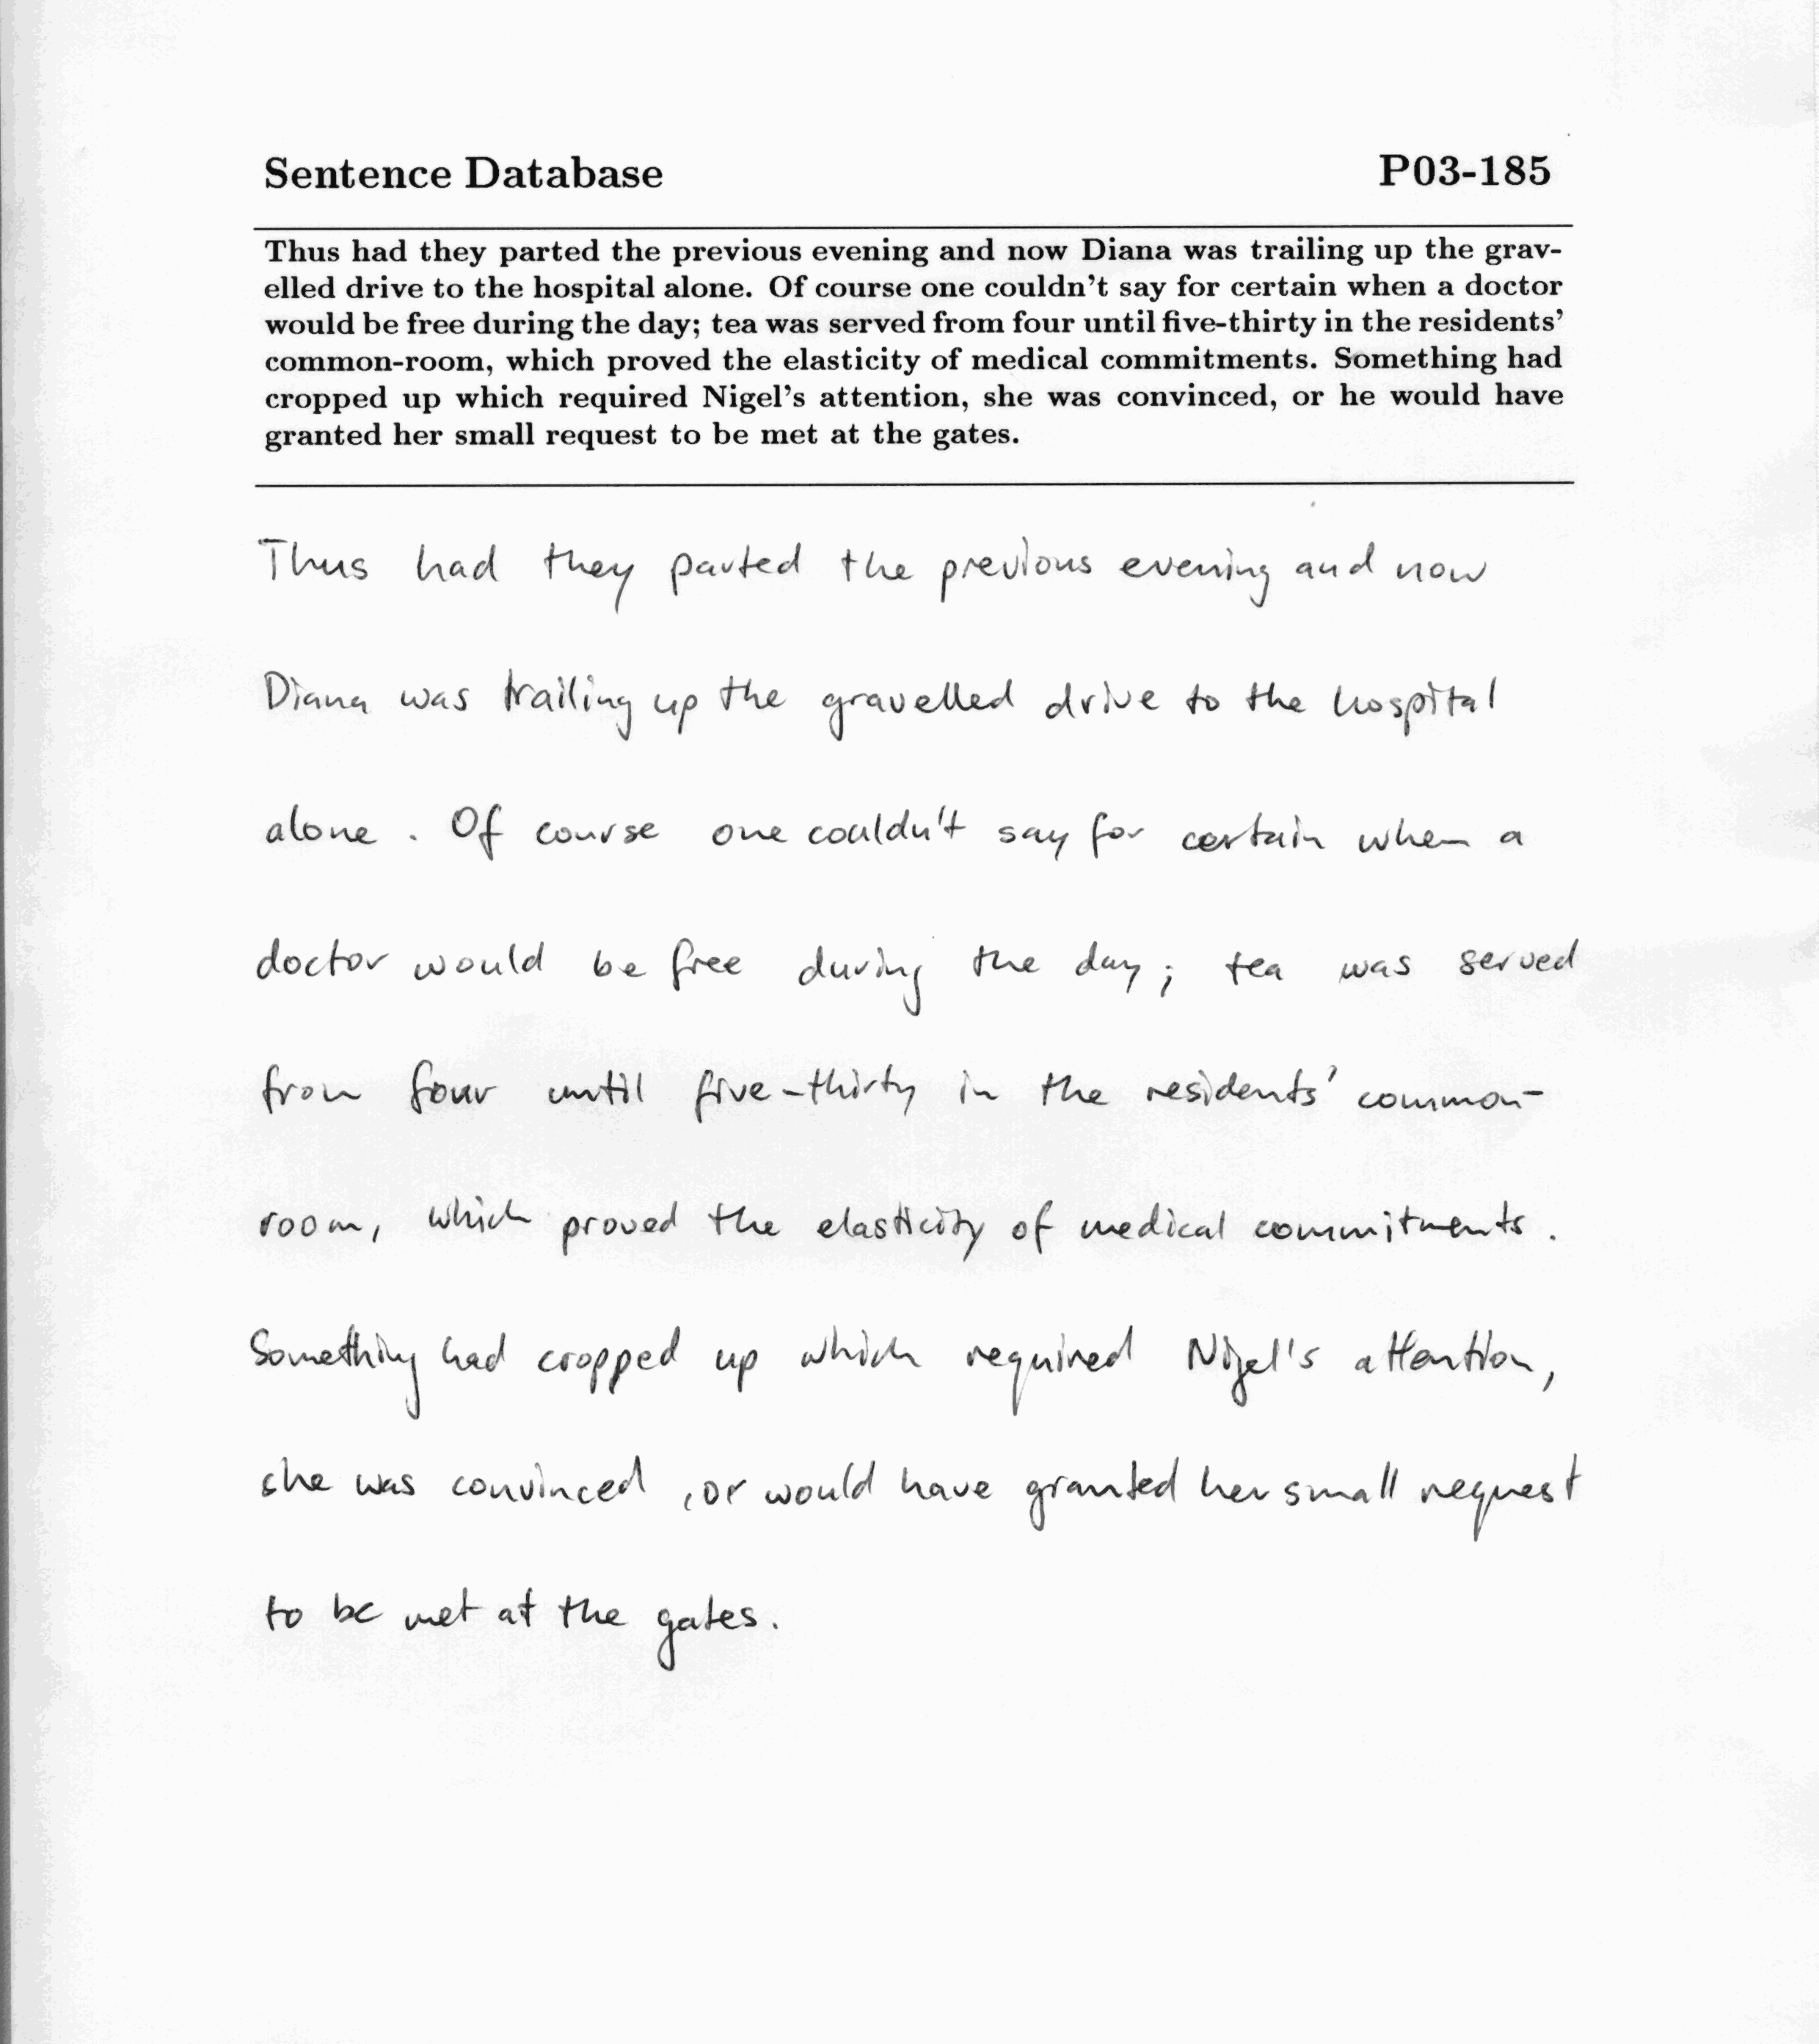 Sentence Database P03-185
Thus had they parted the previous evening and now Diana was trailing up the grav-
elled drive to the hospital alone. Of course one couldn't say for certain when a doctor
would be free during the day; tea was served from four until five-thirty in the residents'
common-room, which proved the elasticity of medical commitments. Something had
cropped up which required Nigel's attention, she was convinced, or he would have
granted her small request to be met at the gates.
Thus had they parted the previous evening and now
Diana was trailing up the gravelled drive to the hospital
alone . Of course one couldn't say for certain when a
doctor would be free during the day ; tea was served
from four until five-thirty in the residents' common-
room, which proved the elasticity of medical commitments .
Something had cropped up which required Nigel's attention,
she was convinced , or would have granted her small request
to be met at the gates.